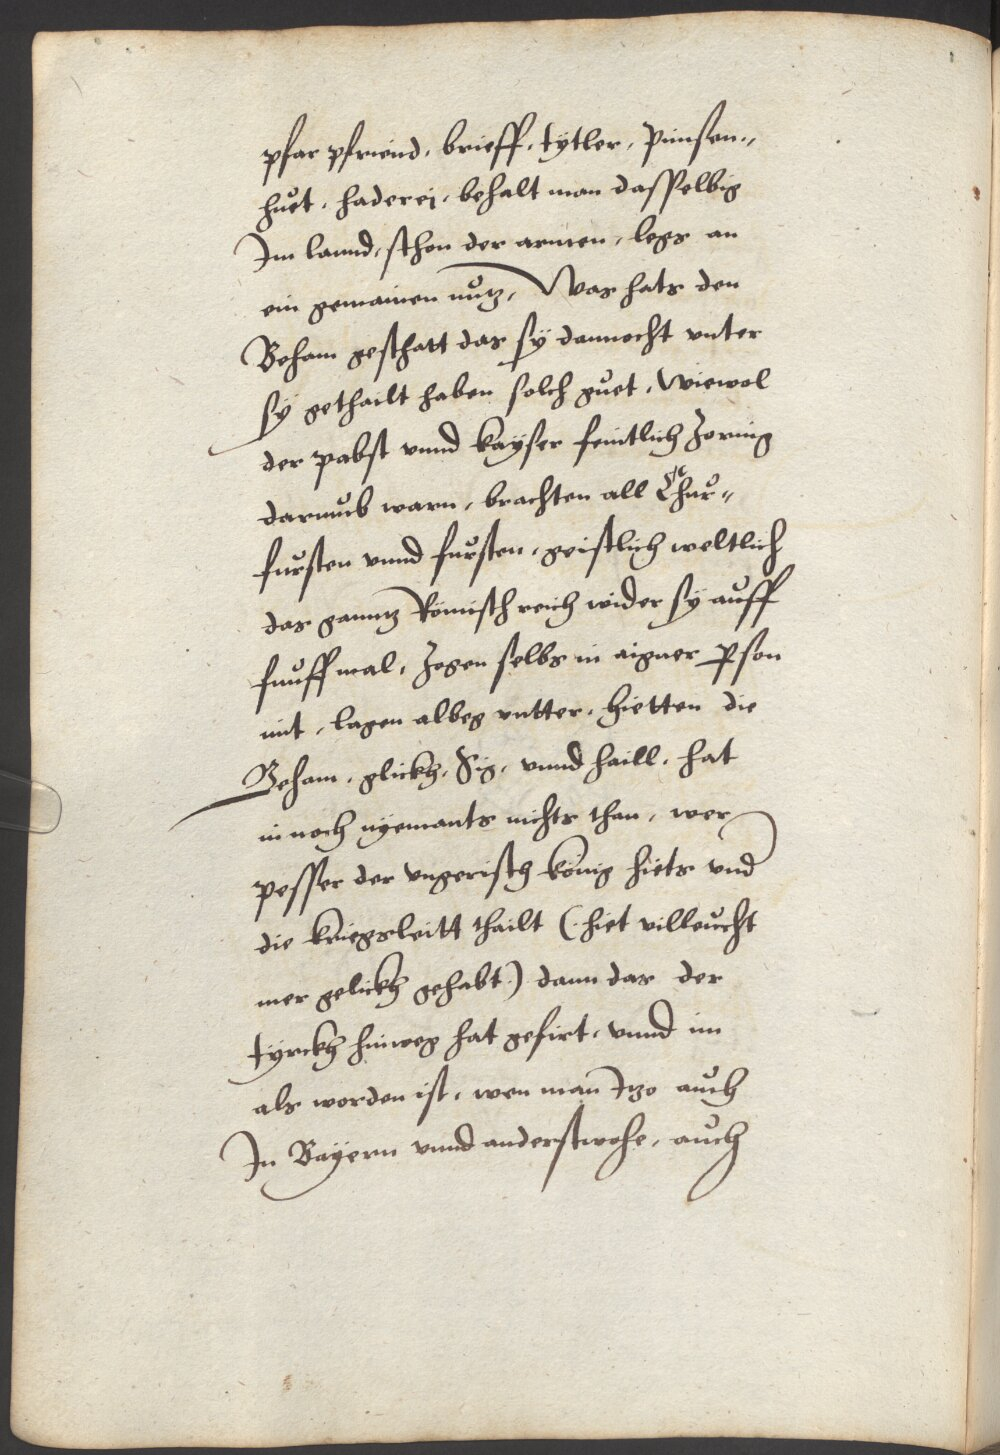 pfar pfriend, brieff, tytler, Pinsen„
huet, haderej, behalt man dasselbig
Im lannd, schon der armen, legs an
ein gemainen nutz, Was hats den
Beham geschatt das sy dannocht unter
sy gethailt haben solch guet, Wiewol
der Pabst vnnd kayser feintlich zornig
darumb warn, brachten all Chur„
fursten vnnd fursten, geistlich weltlich
das ganntz Römisch reich wider sy auff
funff mal, Zogen selbs in aigner Pson
mit, lagen albeg vntter, hietten die
Beham, glickh, Sig, vnnd haill, hat
in noch nyemants nichts than, wer
pesser der vngerisch könig hiets vnd
die kriegsleitt thailt (hiet villeucht
mer gelickh gehabt) dann das der
tyrckh hinweg hat gefirt, vnnd im
als worden ist, wen man Itzo auch
In Bayern vnnd anderstwohe, auch